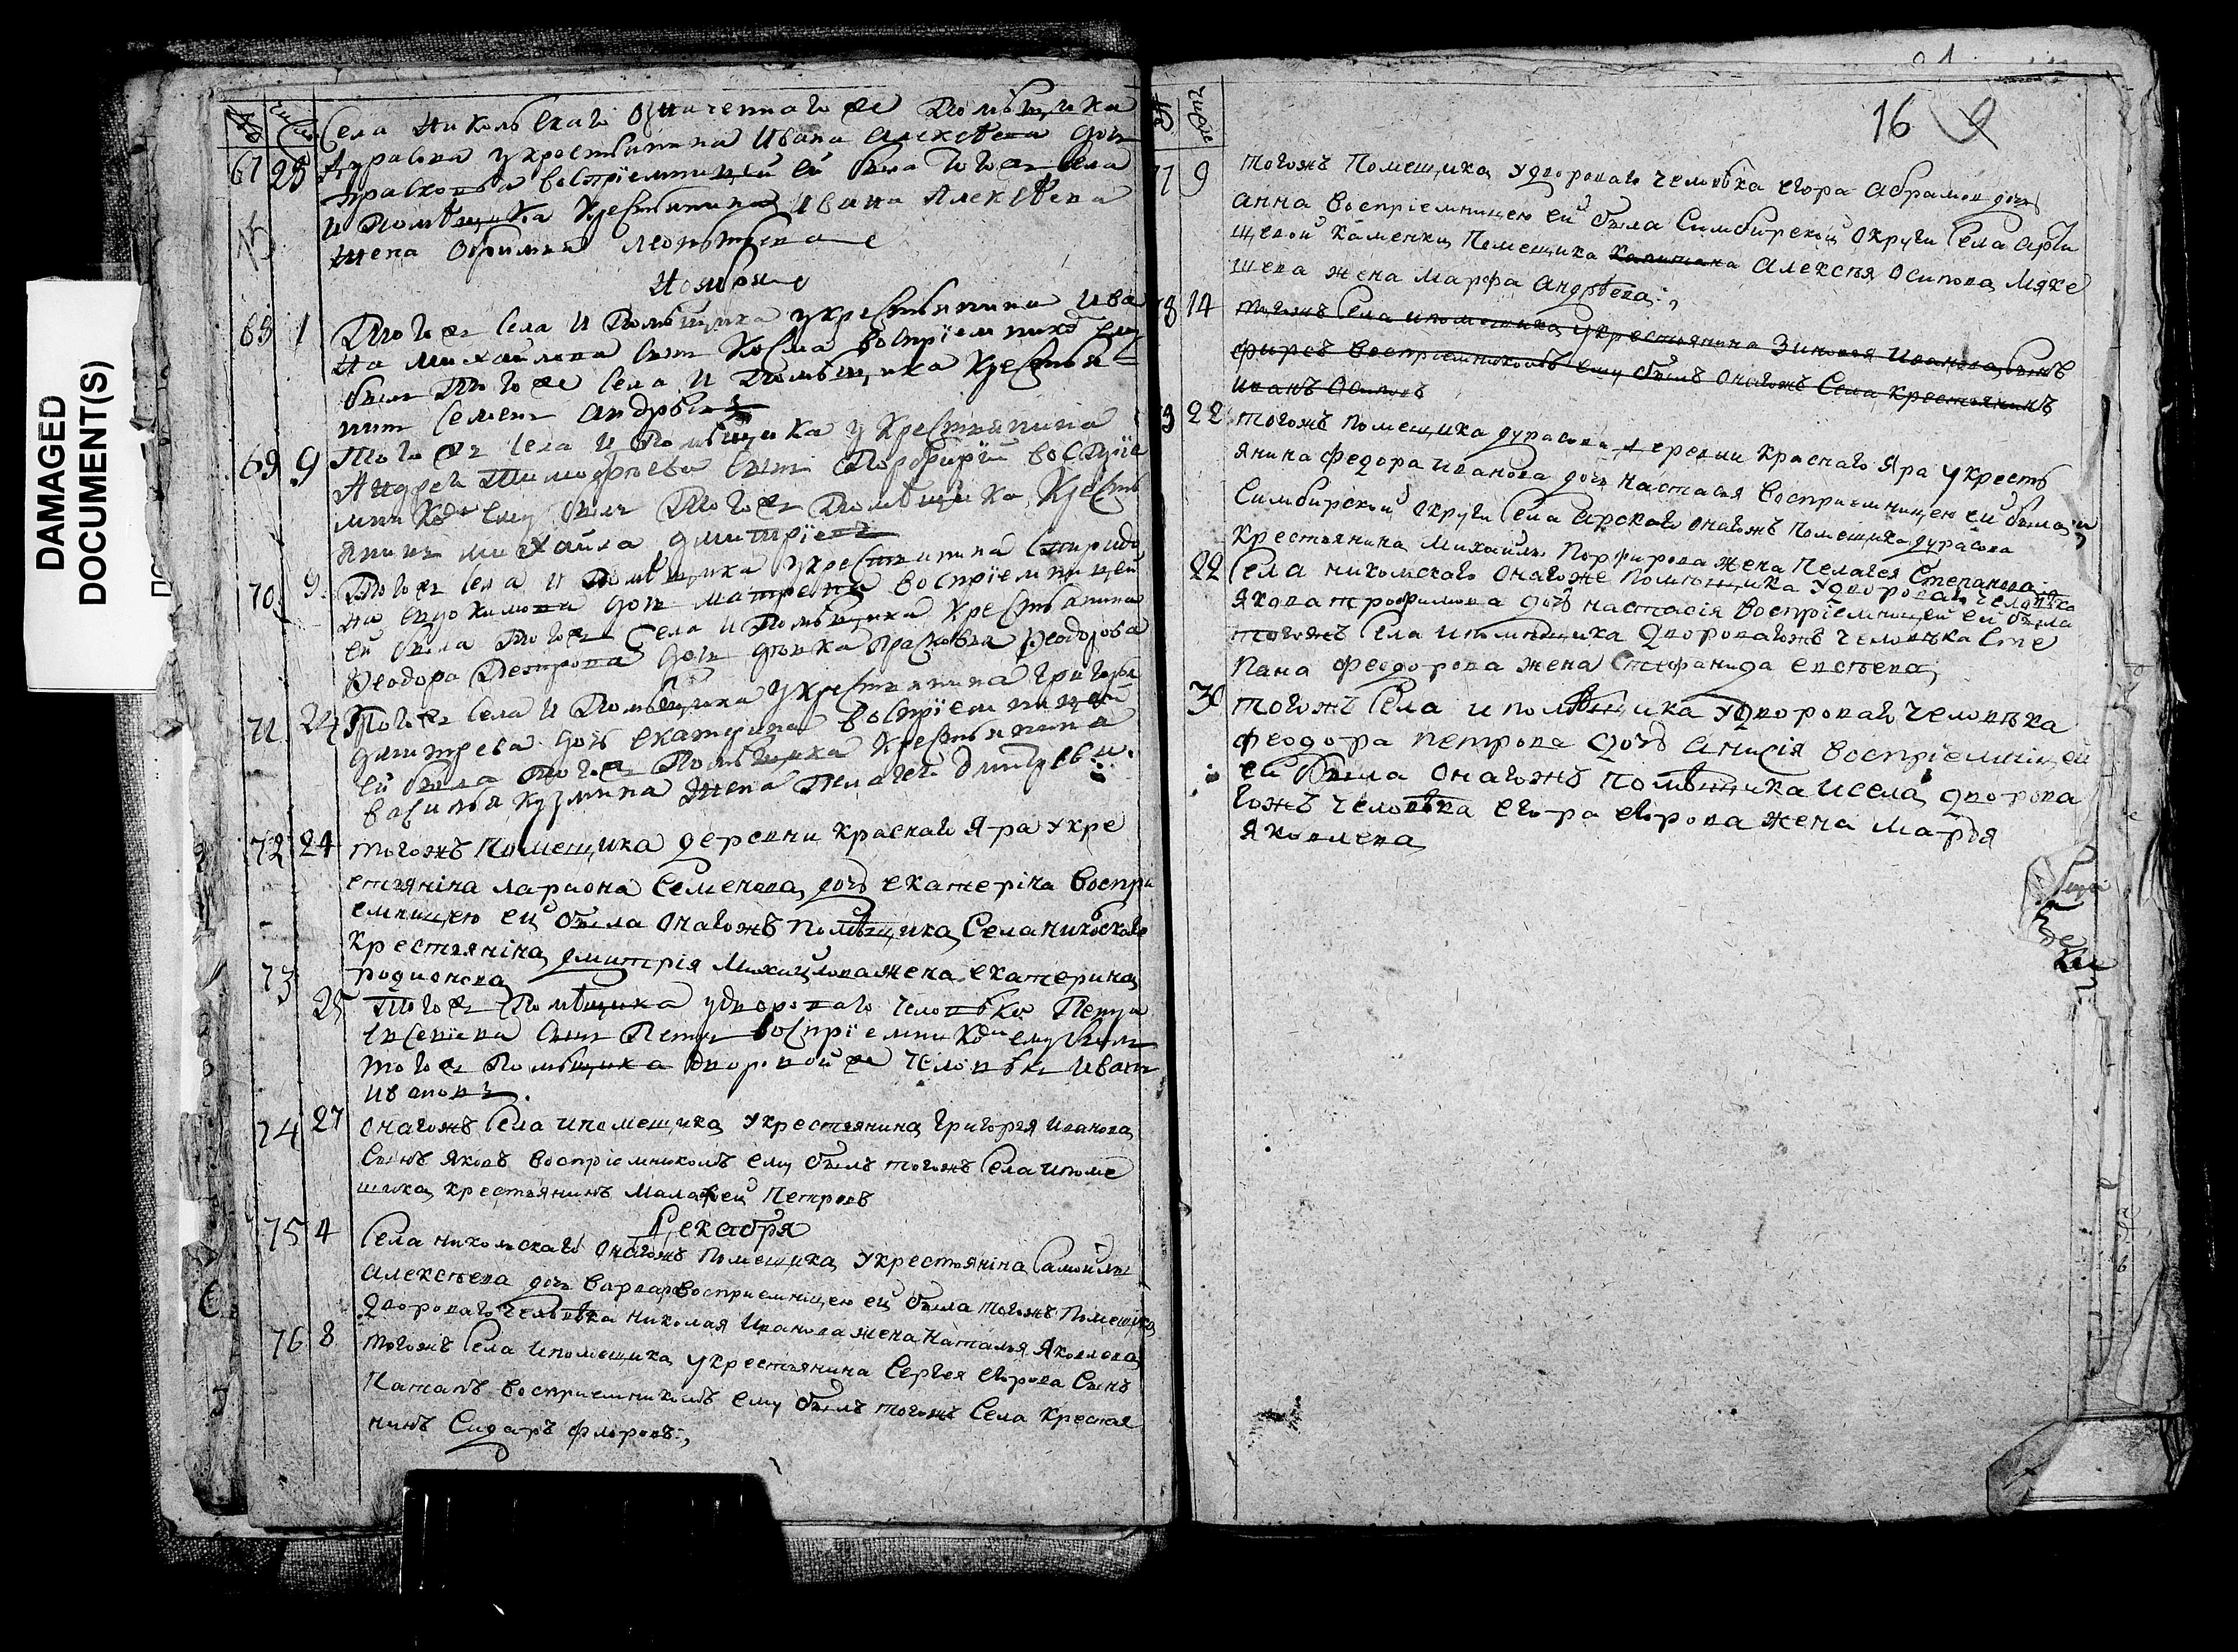 DAMAGED
DOCUMENT(S)
№ Число
Села Никольскаго означеннаго же помѣщика
67 28 Дурасова у крестьянина Ивана Алексѣева дочь
Прасковья воспріемницей ей была тогожъ села
и помѣщика крестьянина Ивана Алексѣева
жена
Ноября
68 1 Тогожъ села и помѣщика у крестьянина Ива
на Михайлова сынъ Косма воспріемникомъ ему
былъ тогоже села и помѣщика крестья
нинъ Семенъ Андрѣевъ
69 9 Тогожъ села и помѣщика у крестьянина
Андрея Тимофѣева сынъ Порфирій воспріе
мникомъ ему былъ тогожъ помѣщика кресть
янинъ Михайла Дмитріевъ
70 9 Тогожъ села и помѣщика у крестьянина Спиридо
на Евдокимова дочь Матрена воспріемницей
ей была тогожъ села и помѣщика крестьянина
Феодора Петрова дочь дѣвка Прасковья Феодорова
71 24 Тогожъ села и помѣщика у крестьянина Григорья
Дмитрева дочь Екатерина воспріемницей
ей была тогожъ помѣщика крестьянина
Василья Кузмина жена Пелагея
72 24 тогожъ помещика деревни Краснаго Яра у кре
стьянина Лариона Семенова дочь Екатеріна воспри
емницею ей была онагожъ помѣщика села Николскаго
крестьяніна Дмитрія Михайлова жена Екатерина
73 Родионова
25 Тогожъ помѣщика у двороваго человѣка Петра
Евсевіева сынъ Петръ воспріемникомъ ему былъ
тогожъ помѣщика дворовой же человѣкъ Иванъ
Ивановъ.
74 27 онагожъ села и помещика у крестьянина Григорья Иванова
сынъ Яковъ воспріемникомъ ему былъ тогожъ села и поме
щика крестьянинъ Малафей Петровъ
Декабря
75 4 Села Никольскаго онагожъ помещика у крестьяніна Самойлы
Алексѣева дочь Варвара воспріемніцею ей была тогожъ помещика
двороваго человѣка Николая Иванова жена Наталья Яковлева
76 8 тогожъ села и помещика у крестьянина Сергея Егорова сынъ
Патапъ восприемникомъ ему былъ тогожъ села крестья
нинъ Сидаръ Флоровъ
16
числа
77 9 тогожъ помещика у двороваго человѣка Егора Абрамова дочь
Анна воспріемницею ей была Симбирской округи села Арбу
щевой Каменки помещика капитана Алексѣя Осипова Мяке
шева жена Марфа Андрѣева
78 14 тогожъ села и помещика у крестьянина Зиновея Иванова сынъ
Фирсъ воспріемникомъ ему былъ онагожъ села крестьянинъ
Иванъ Осиповъ
79 22 тогожъ помещика Дурасова деревни Краснаго Яра у кресть
янина Федора Иванова дочь Настасья восприемницею ей была
Симбирской округи села Арскаго онагожъ помещика Дурасова
крестьянина Михайлы Порфирова жена Пелагея Степанова
22 Села Николскаго онагоже помѣщика у двороваго человѣка
Якова Трофимова дочь Настасія воспріемницей ей была
тогожъ села и помѣщика двороваго жъ человѣка Сте
пана Феодорова жена Стефанида Евсѣева
30 тогожъ села и помѣщика у двороваго человѣка
Феодора Петрова дочь Анисія воспріемніцей
ей была онагожъ помѣщика и села дворова
гожъ человѣка Егора Егорова жена Марья
Яковлева